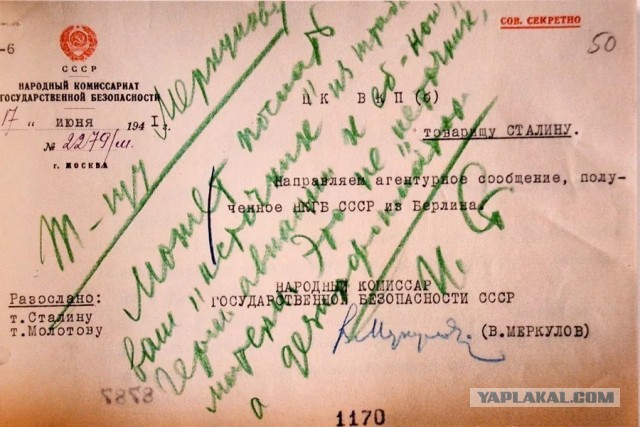 СОВ. СЕКРЕТНО
-6
50
СССР
НАРОДНЫЙ КОМИССАРИАТ
ГОСУДАРСТВЕННОЙ БЕЗОПАСНОСТИ
17 " июня 1941 г.
№ 2279/м.
г. МОСКВА
Ц К В К П (б)
товарищу СТАЛИНУ.
Направляем агентурное сообщение, полу-
ченное НКГБ СССР из Берлина.
НАРОДНЫЙ КОМИССАР
ГОСУДАРСТВЕННОЙ БЕЗОПАСНОСТИ СССР
(В.МЕРКУЛОВ)
Разослано:
т.Сталину
т.Молотову
Т-щу Меркулову
Может послать
ваш "источник" из штаба
герм. авиации к еб-ной
матери. Это не "источник",
а дезинформатор.
И. Ст
1170
YAPLAKAL.COM